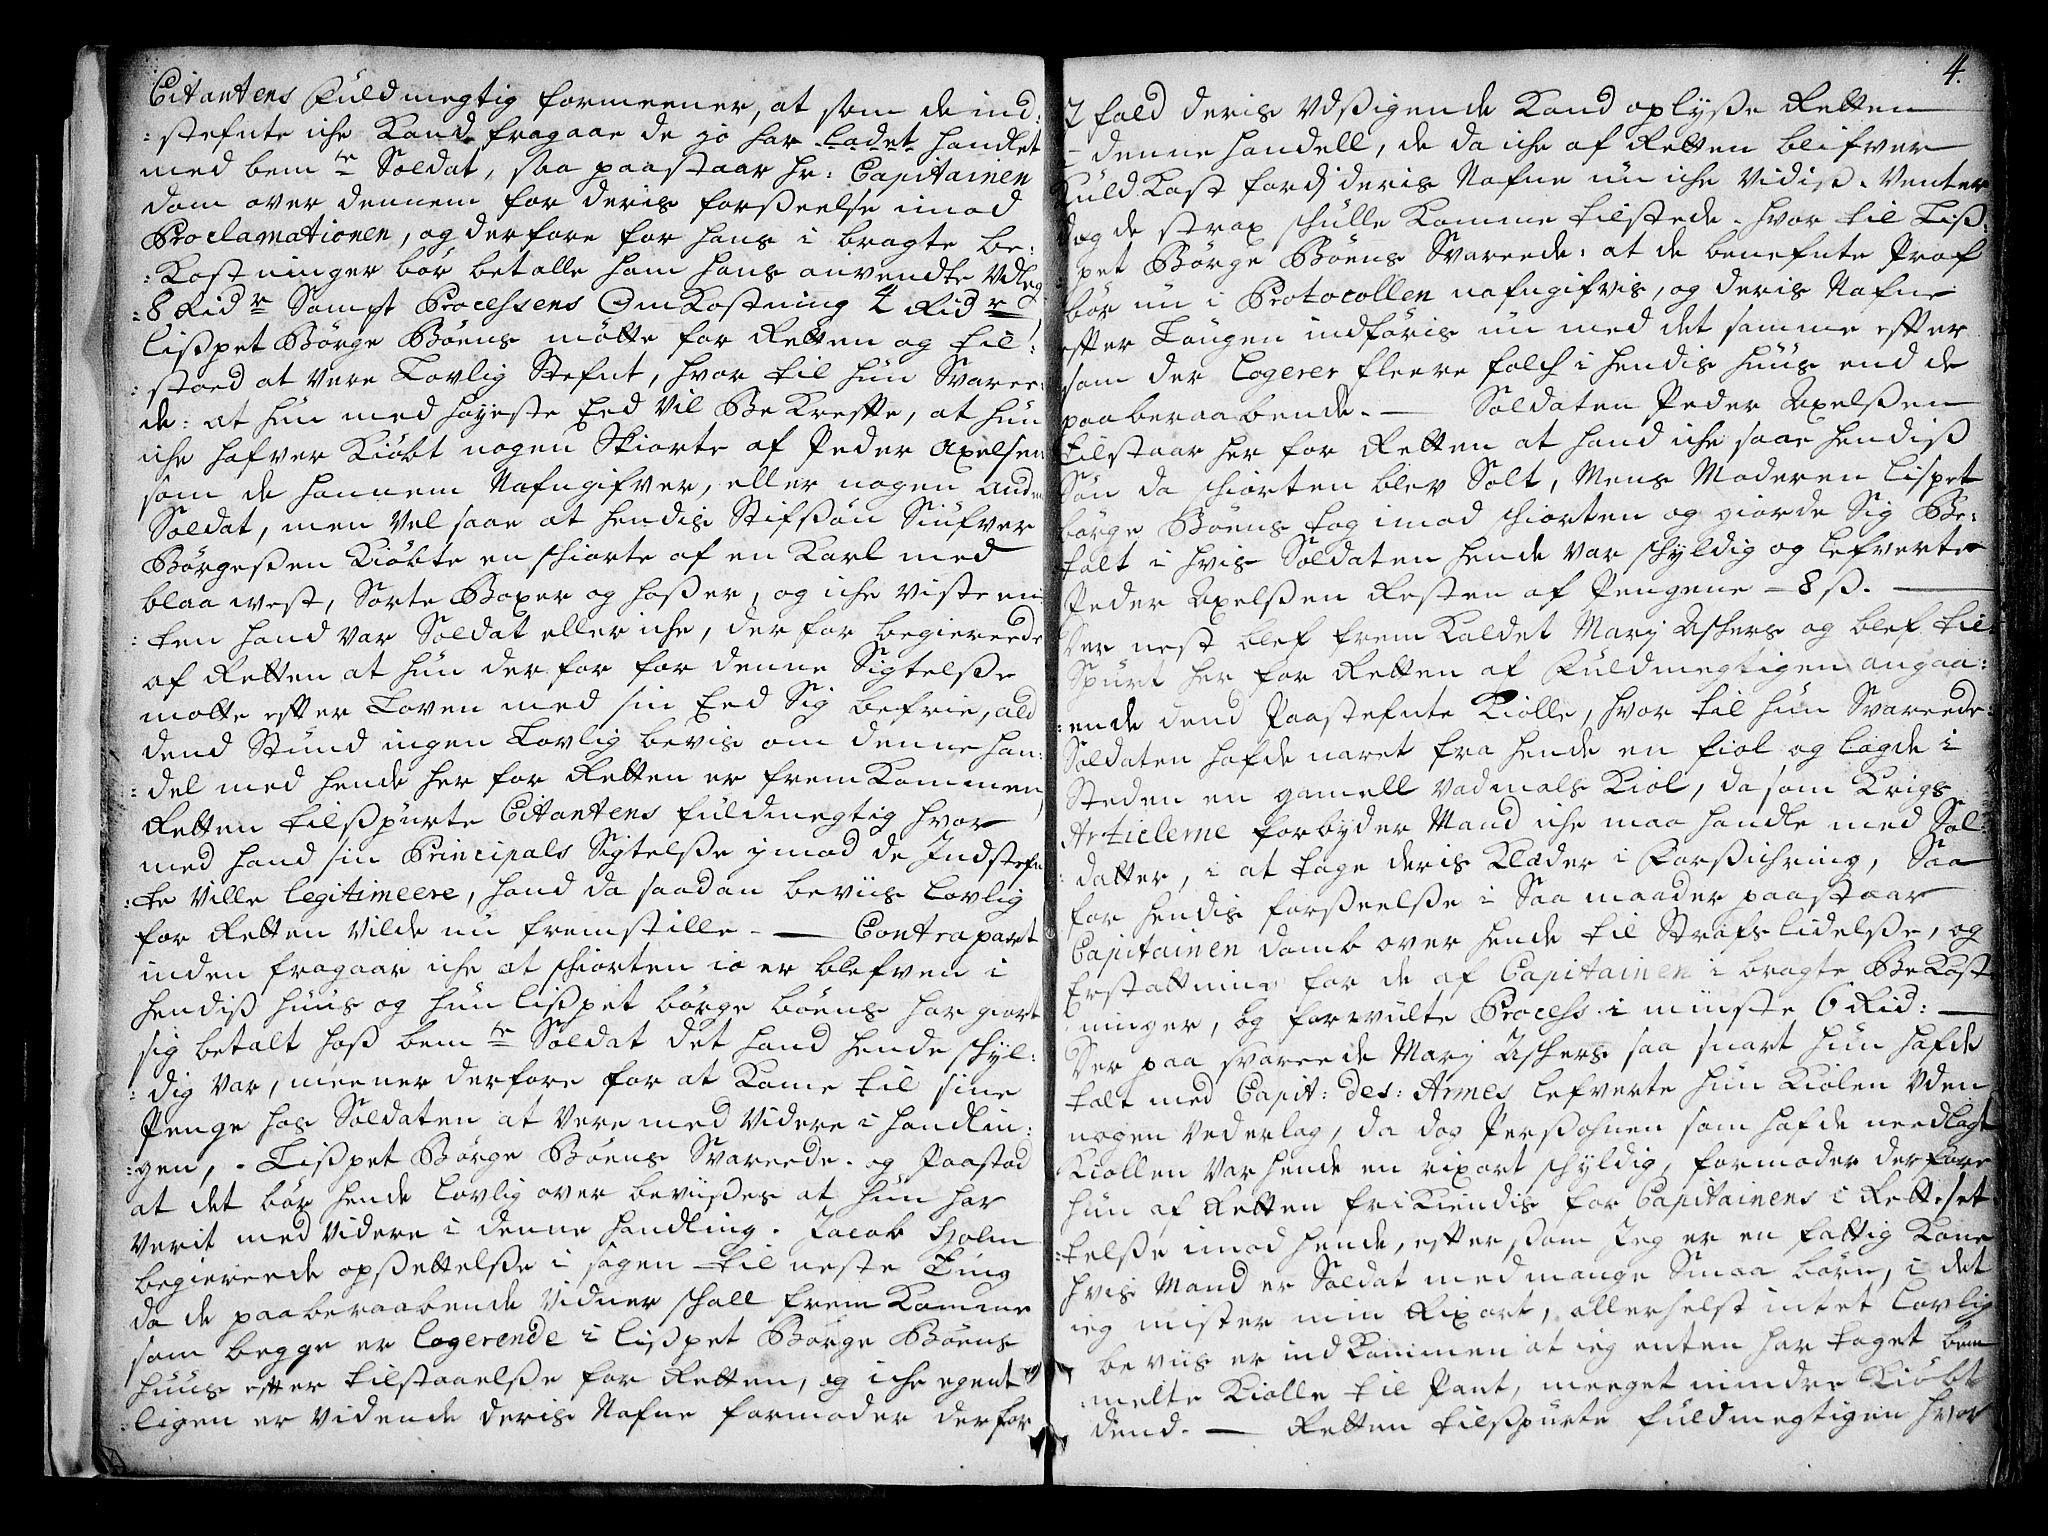 Citantens Fuldmegtig formeener, at som de ind:
:stefnte iche Kand fragaae de jo har ladet handlet
med bem.te Soldat, saa paastaar hr: Capitainen
dom over dennem for deris forßeelse imod
Proclamationen, og derfore for hans i bragte be:
:Kostninger bør betalle ham hans anvendte Udleg
:8 Rid.r Sampt Processens OmKostning 4 Rid.r
Lißpet Børge Bøens møtte for Retten og til:
:stoed at vere Lovlig Stefnt, hvor til hun Svaree:
de: at hun med høyeste Eed vil BeKrefte, at hun
iche hafver Kiøbt nogen Skiorte af Peder Axelsen
som de hannem Nafngifver, eller nogen anden
Soldat, men vel saae at hendis Stifßøn Siufver
Børgeßen Kiøbte en schiorte af en Karl med
blaa west, Sorte Boxer og hoßer, og iche viste en:
:ten hand var Soldat eller iche, derfor begiereede
af Retten at hun derfor for denne Sigtelße
motte efter Loven med sin Eed Sig befrie, ald
dend Stund ingen Lovlig bevis om denne han:
:del med hende her for Retten er fremKommen,
Retten tilßpurte Citantens fuldmegtig hvor
med hand sin Principals Sigtelße imod de Indstefn
:te ville legitimeere, hand da saadan beviis Lovlig
for Retten vilde nu fremstille. — Contrapart
inden fragaar iche at schiorten io er blefven i
hendiß huus og hun lißpet børge bøens har giort
sig betalt hoß bem.te Soldat det hand hende schyl:
:dig var, meener derfore for at Kome til sine
Penge hos Soldaten at vere med videre i handlin:
:gen, . Lißpet Børge Bøens Svareede. og Paastod
at det bør hende Lovlig over beviißes at hun har
verit med videre i denne handling. Jacob Holm
begiereede opßettelße i sagen til neste Ting
da de paaberaabende vidner schall fremKomme
som begge er logerende i lißpet Børge Bøens
huus efter tilstaaelße for Retten, og iche egent
:ligen er vidende deris Nafne formoder derfor
4.
I fald deris Udßigende Kand oplyße Retten
denne handell, de da iche af Retten blifver
Kuld Kast fordj deris Nafne nu iche vidis. Venter
dog de strax schulle Komme tilstede. hvor til Liß:
:pet Børge Bøens Svareede: at de benefnte Prof
bør nu i Protocollen nafngifvis, og deris Nafne
efter Laugen indføris nu med det samme efter
som der logerer fleere folch i hendis huus end de
paaberaabende. — Soldaten Peder Axelßen
tilstaar her for Retten at hand iche saae hendiß
Søn da schiorten blev Solt, Mens Moderen Lispet
børge Bøens tog imod schiorten og giorde Sig Be:
talt i hvis Soldaten hende var schyldig og lefverte
Peder Axelßen Resten af Pengene — 8 ß. —
Der nest blef fremKaldet Marj Aschers og blef til
Spurt her for Retten af Fuldmegtigen angaa:
:ende dend Paastefnte Kiolle, hvor til hun Svareede
Soldaten hafde naret fra hende en fiol og lagde i
Steden en gamell Vadmals Kiol, da som Krigs
Articlerne forbyder Mand iche maa handle med Sol:
:datter, i at tage deris Klæder i Forßichring, Saa
for hendis forßeelße i Saa maader paastaar
Capitainen domb over hende til Strafs lidelße, og
Erstattning for de af Capitainen i bragte BeKost
ninger, og forvulte Process i minste 6 Rid: —
Der paa svareede Marj Aschers saa snart hun hafde
talt med Capit: des: Armes lefverte hun Kiolen Uden
nogen Vederlag, da dog Perßohnen som hafde needlagt
Kiollen var hende en rixort schyldig, formoder derfore
hun af Retten friKiendis for Capitainens i Rettesæt
:telße imod hende, efterßom Jeg er en fattig Kone
hvis Mand er Soldat med mange Smaa børn, i det
ieg mister min Rixort, allerhelst intet lovlig
beviis er indKommen at ieg enten har taget bem
:melte Kiolle til Pant, meeget mindre Kiøbt
dend. — Retten tilßpurte fuldmegtigen hvor